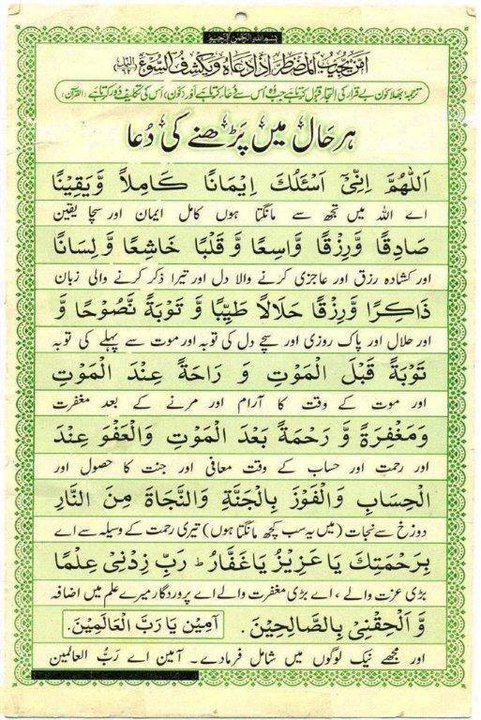 بسم الله الرحمن الرحيم
اَمَّنْ يُّجِيْبُ الْمُضْطَرَّ اِذَا دَعَاهُ وَيَكْشِفُ السُّوْٓءَ
ترجمہ بھلا کون بے قرار کی التجا قبول کرتا ہے جب وہ اس سے دعا کرتا ہے اور کون اس کی تکلیف دور کرتا ہے (القرآن)
ہر حال میں پڑھنے کی دُعا
اَللّٰهُمَّ اِنِّىْٓ اَسْئَلُكَ اِيْمَانًا كَامِلاً وَّيَقِيْنًا
اے اللہ میں تجھ سے مانگتا ہوں کامل ایمان اور سچا یقین
صَادِقًا وَّرِزْقًا وَّاسِعًا وَّقَلْبًا خَاشِعًا وَّلِسَانًا
اور کشادہ رزق اور عاجزی کرنے والا دل اور تیرا ذکر کرنے والی زبان
ذَاكِرًا وَّرِزْقًا حَلَالًا طَيِّبًا وَّ تَوْبَةً نَّصُوْحًا وَّ
اور حلال اور پاک روزی اور سچے دل کی توبہ اور موت سے پہلے کی توبہ
تَوْبَةً قَبْلَ الْمَوْتِ وَ رَاحَةً عِنْدَ الْمَوْتِ
اور موت کے وقت کا آرام اور مرنے کے بعد مغفرت
وَمَغْفِرَةً وَّ رَحْمَةً بَعْدَ الْمَوْتِ وَالْعَفْوَ عِنْدَ
اور رحمت اور حساب کے وقت معافی اور جنت کا حصول اور
الْحِسَابِ وَالْفَوْزَ بِالْجَنَّةِ وَالنَّجَاةَ مِنَ النَّارِ
دوزخ سے نجات (میں یہ سب کچھ مانگتا ہوں) تیری رحمت کے وسیلہ سے اے
بِرَحْمَتِكَ يَا عَزِيْزُ يَا غَفَّارُ ط رَبِّ زِدْنِىْ عِلْمًا
بڑی عزت والے ، اے بڑی مغفرت والے اے پروردگار میرے علم میں اضافہ
وَّ اَلْحِقْنِىْ بِالصَّالِحِيْنَ. آمِيْن يَا رَبَّ الْعَالَمِيْنَ.
اور مجھے نیک لوگوں میں شامل فرمادے۔ آمین اے رَبُّ العالمین